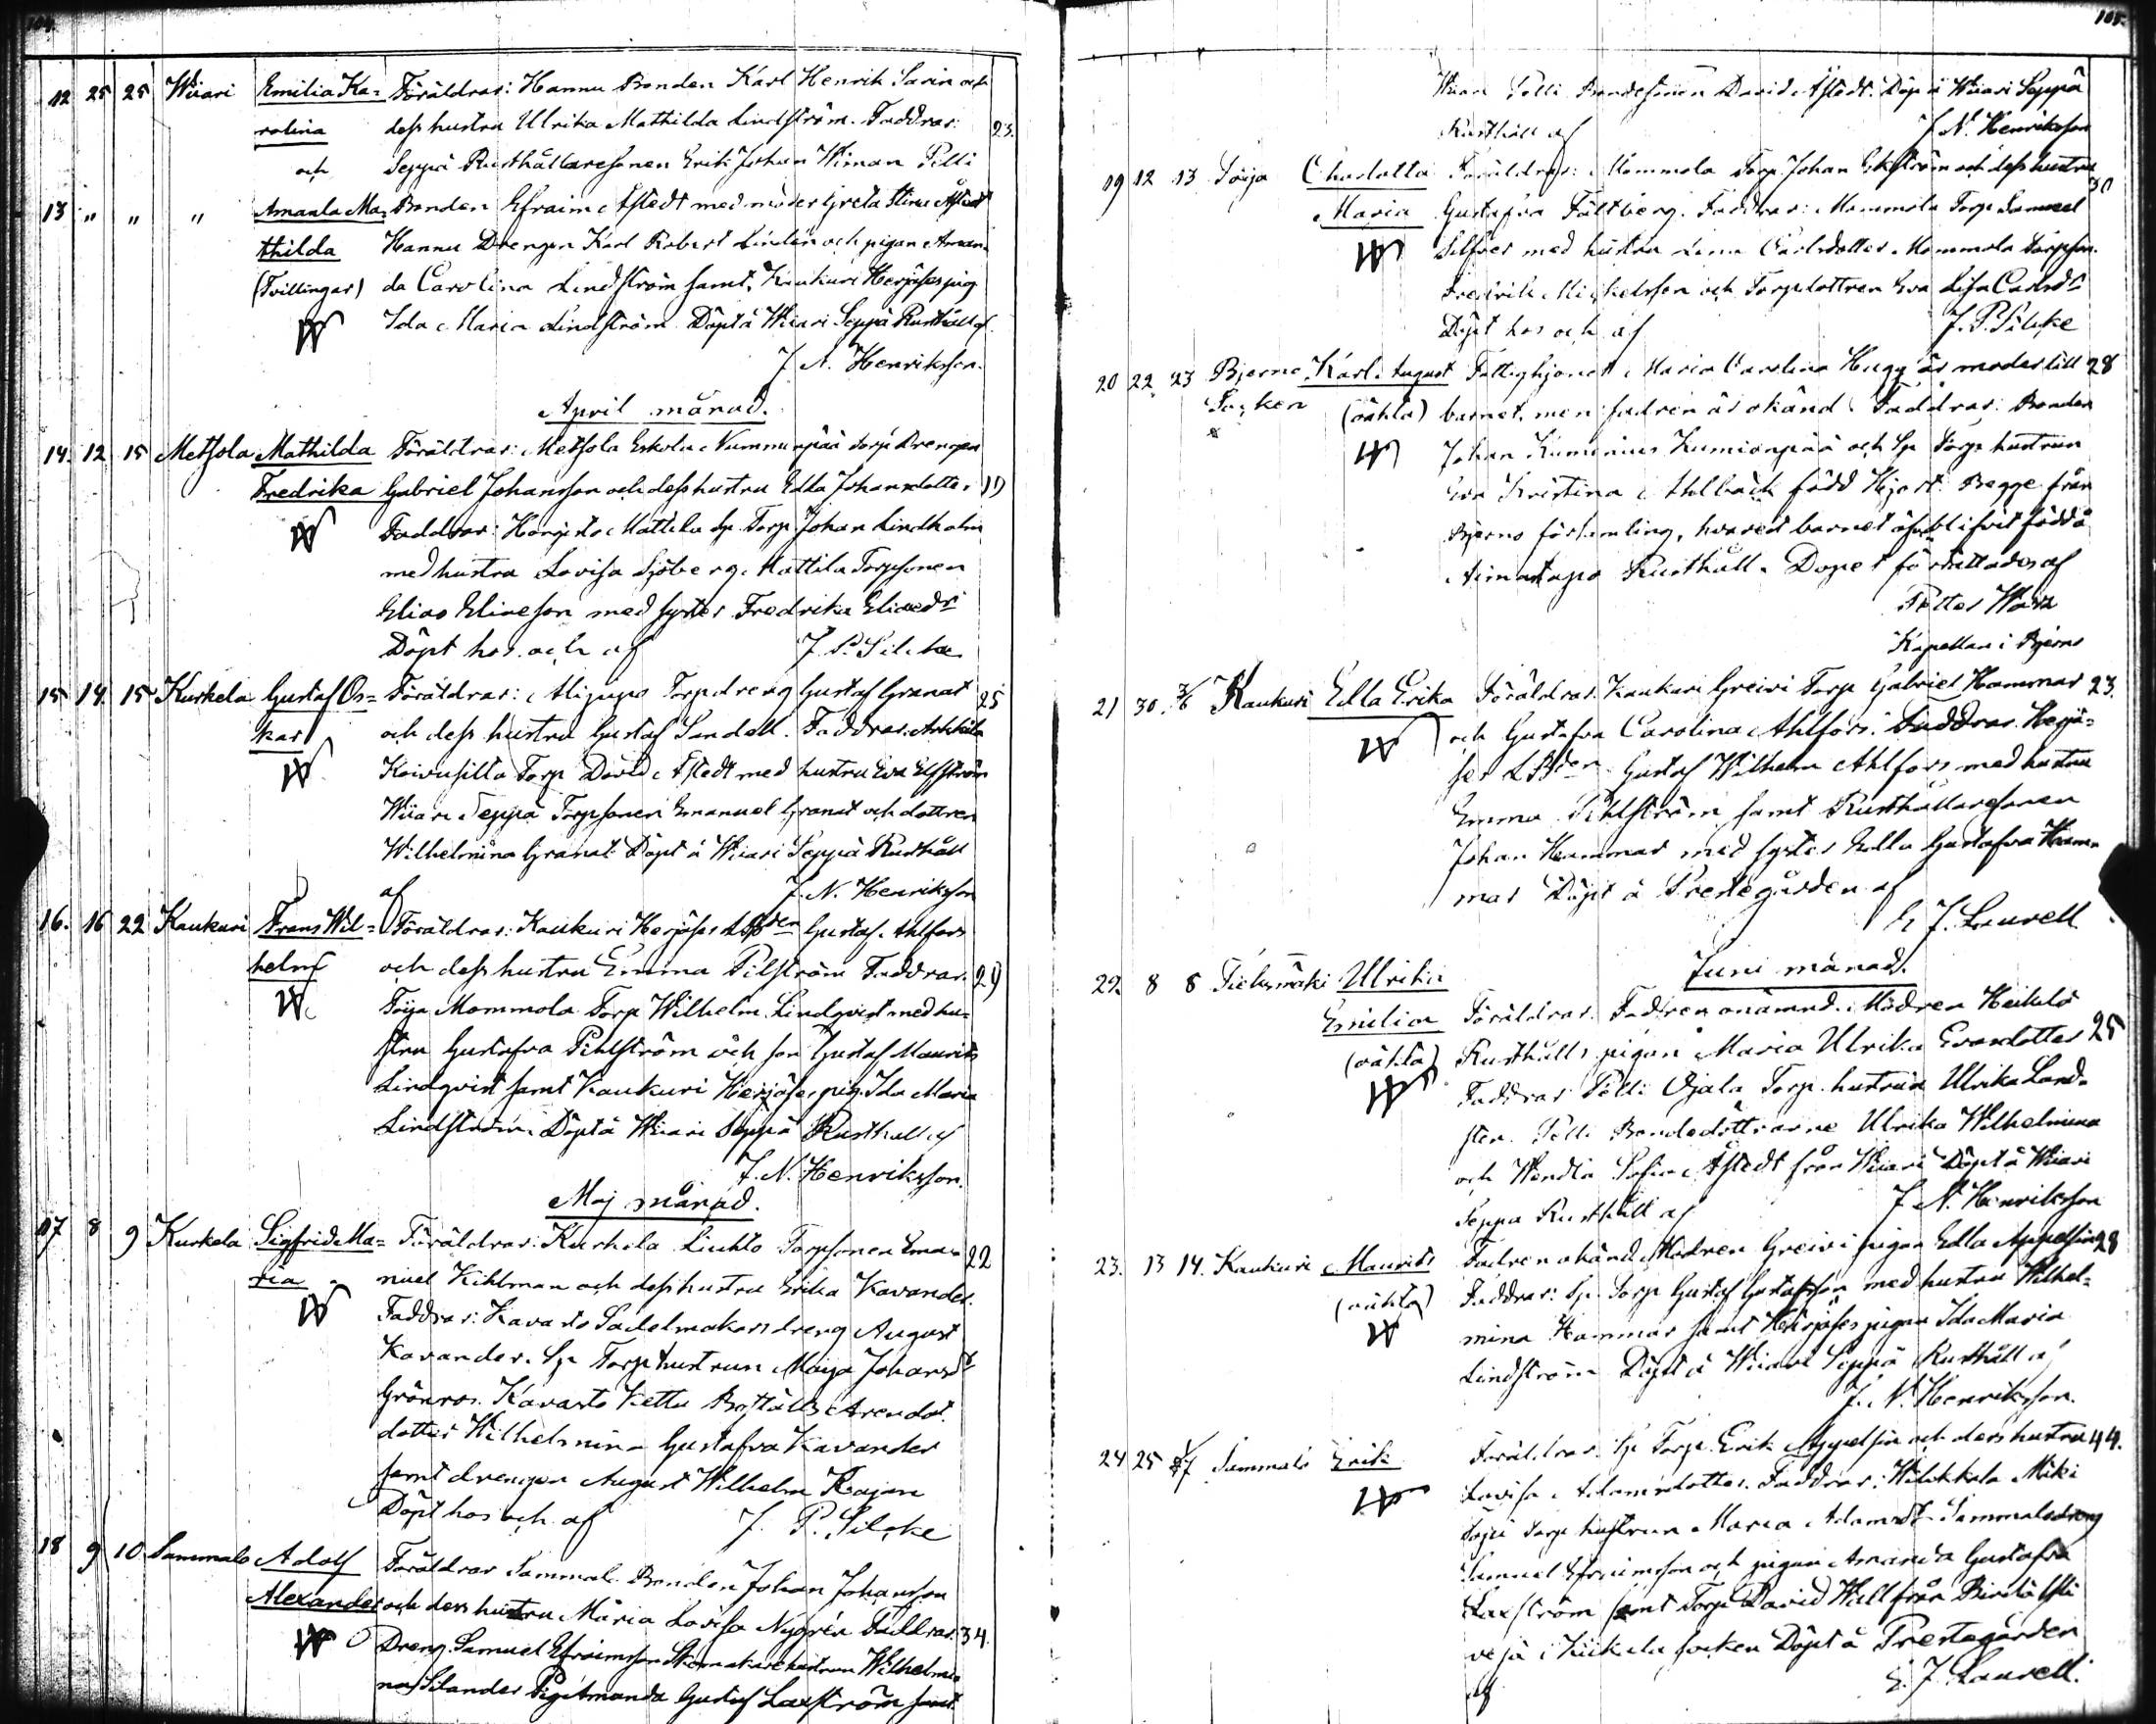 104.
12 25 25 Wiiari Emilia Ka= Föräldrar: Hannu Bonden Karl Henrik Sarin och
rolina dess hustru Ulrika Mathilda Lindström. Faddrar: 23.
och Seppä Rusthållaresonen Erik Johan Wiman Pelli
13 " " " Amanda Ma= Bonden Efraim Åstedt med moder Greta Stina Åstedt
thilda Hannu Drengen Karl Robert Lindén och pigan Aman-
(Tvillingar) da Carolina Lindström samt Kaukuri Herjöfes pig
W Ida Maria Lindström Döpt å Wiiari Seppä Rusthåll af
J. N. Henriksson.
April månad.
14. 12 15 Metsola Mathilda Föräldrar: Metsola Eskola Nummenpää Torp Drengen
Fredrika Gabriel Johansson och dess hustru Edla Johansdotter
W Faddrar: Mattila Sp. Torp. Johan Lindholm
med hustru Lovisa Sjöberg. Mattila Torpsonen
Elias Eliesson med syster Fredrika
Döpt hos och af J. P. Silcke
15 14. 15 Kurkela Gustaf Os= Föräldrar: Torpdreng Gustaf Granat 25
kar och dess hustru Gustaf Sandell. Faddrar:
W Koivusilta Torp David Åstedt med hustru Eva Elfström
Wiiari Seppä Torpsonen Emanuel Granat och dottren
Wilhelmina Granat. Döpt å Wiiari Seppä Rusthåll
af J. N. Henriksson
16. 16 22 Kaukuri Frans Wil= Föräldrar: Kaukuri Herjöfes Gustaf Ahlfors
helm och dess hustru Emma Pilström Faddrar. 29
W Töija Mommola Torp Wilhelm Lindqvist med hu=
stru Gustafva Pihlström och son Gustaf Maurits
Lindqvist samt Kaukuri Herjöfes pig. Ida Maria
Lindström. Döpt å Wiiari Seppä Rusthåll af
J. N. Henriksson.
Maj månad.
17 8 9 Kurkela Sigfrid Ma= Föräldrar: Kurkela Liuhto Torpsonen Ema= 22
ria nuel Kihlman och dess hustru Erika Kavander.
W Faddrar: Kavasto Sadelmakarsdreng August
Kavander. Sp Torp hustrun Maija Johansdr
Grönroos. Kavasto Kettu Boställs Arendat.
dotter Wilhelmina Gustafva Kavander
samt drengen August Wilhelm Rajan
Döpt hos och af J. P. Silcke
18 9 10 Sammalo Adolf Föräldrar Sammalo Bonden Johan Johansson
Alexander och dess hustru Maria Lovisa Nygrén Faddrar. 34.
W Dreng Samuel Efraimsson Skomakarehustrun Wilhelmi
na Silander Pig Amanda Gustaf Laxström samt
105.
Wiiari Pelli Bondesonen David Åstedt. Döpt å Wiiari Seppä
Rusthåll af J. N. Henriksson
19 12 13 Töija Charlotta Föräldrar: Mommola Torp Johan Ekström och dess hustru
Maria Gustafva Fältberg. Faddrar: Mommola Torp Samuel 30
W Silfver med hustru Lena Carlsdotter Mommola Torpson.
Fredrik Mickelsson och Torpdottren Eva Lisa Carlsdr
Döpt hos och af J. P. Silcke
20 22 23 Bjerno Karl August Fattighjonet Maria Carolina Hugg är moder till 28
Socken (oäkta) barnet, men fadren är okänd. Faddrar: Bonden
W Johan Kumenius Kumionpää och Sp Torp hustrun
Eva Kristina Ahlbäck född Hjort. Begge från
Bjerno församling, hvarest barnet äfven blifvit född å
Rusthåll. Dopet förrättades af
Petter
Kapellan i Bjerno
21 30. 3/6 Kaukuri Edla Erika Föräldrar: Kaukuri Greivi Torp Gabriel Hammar 23.
W och Gustafva Carolina Ahlfors. Faddrar. Herjö=
fes Gustaf Wilhelm Ahlfors med hustru
Emma Pihlström samt Rusthållaresonen
Johan Hammar med syster Edla Gustafva Ham=
mar Döpt å Prestegården af
E J. Laurell
Juni månad.
22. 8 8 Ulrika
Emilia Föräldrar. Fadren onämnd. Modren Heikilä
(oäkta) Rusthålls pigan Maria Ulrika Evasdotter 25
W Faddrar Pelli Ojala Torp. hustrun Ulrika Land-
sten. Pelli Bondedöttrarne Ulrika Wilhelmina
och Wendla Sofia Åstedt från Wiiari Döpt å Wiiari
Seppä Rusthåll af J. N. Henriksson
23. 13 14. Kaukuri Maurits Fadren okänd. Modren Greivi pigan Edla Appelsin 28
(oäkta) Faddrar: Sp. Torp Gustaf Gustafsson med hustru Wilhel=
W mina Hammar samt Herjöfes pigan Ida Maria
Lindström Döpt å Wiiari Seppä Rusthåll af
J. N. Henriksson.
24 25 1/7 Sammalo Erik Föräldrar. Sp Torp. Erik Appelsin och dess hustru 44.
W Lovisa Adamsdotter. Faddrar: Miki
Torp hustrun Maria Adamsdr Sammalo dreng
Samuel Efraimsson och pigan Amanda Gustafva
Laxström samt Torp David Wall från
i Kiikala socken Döpt å Prestegården
af E. J. Laurell.